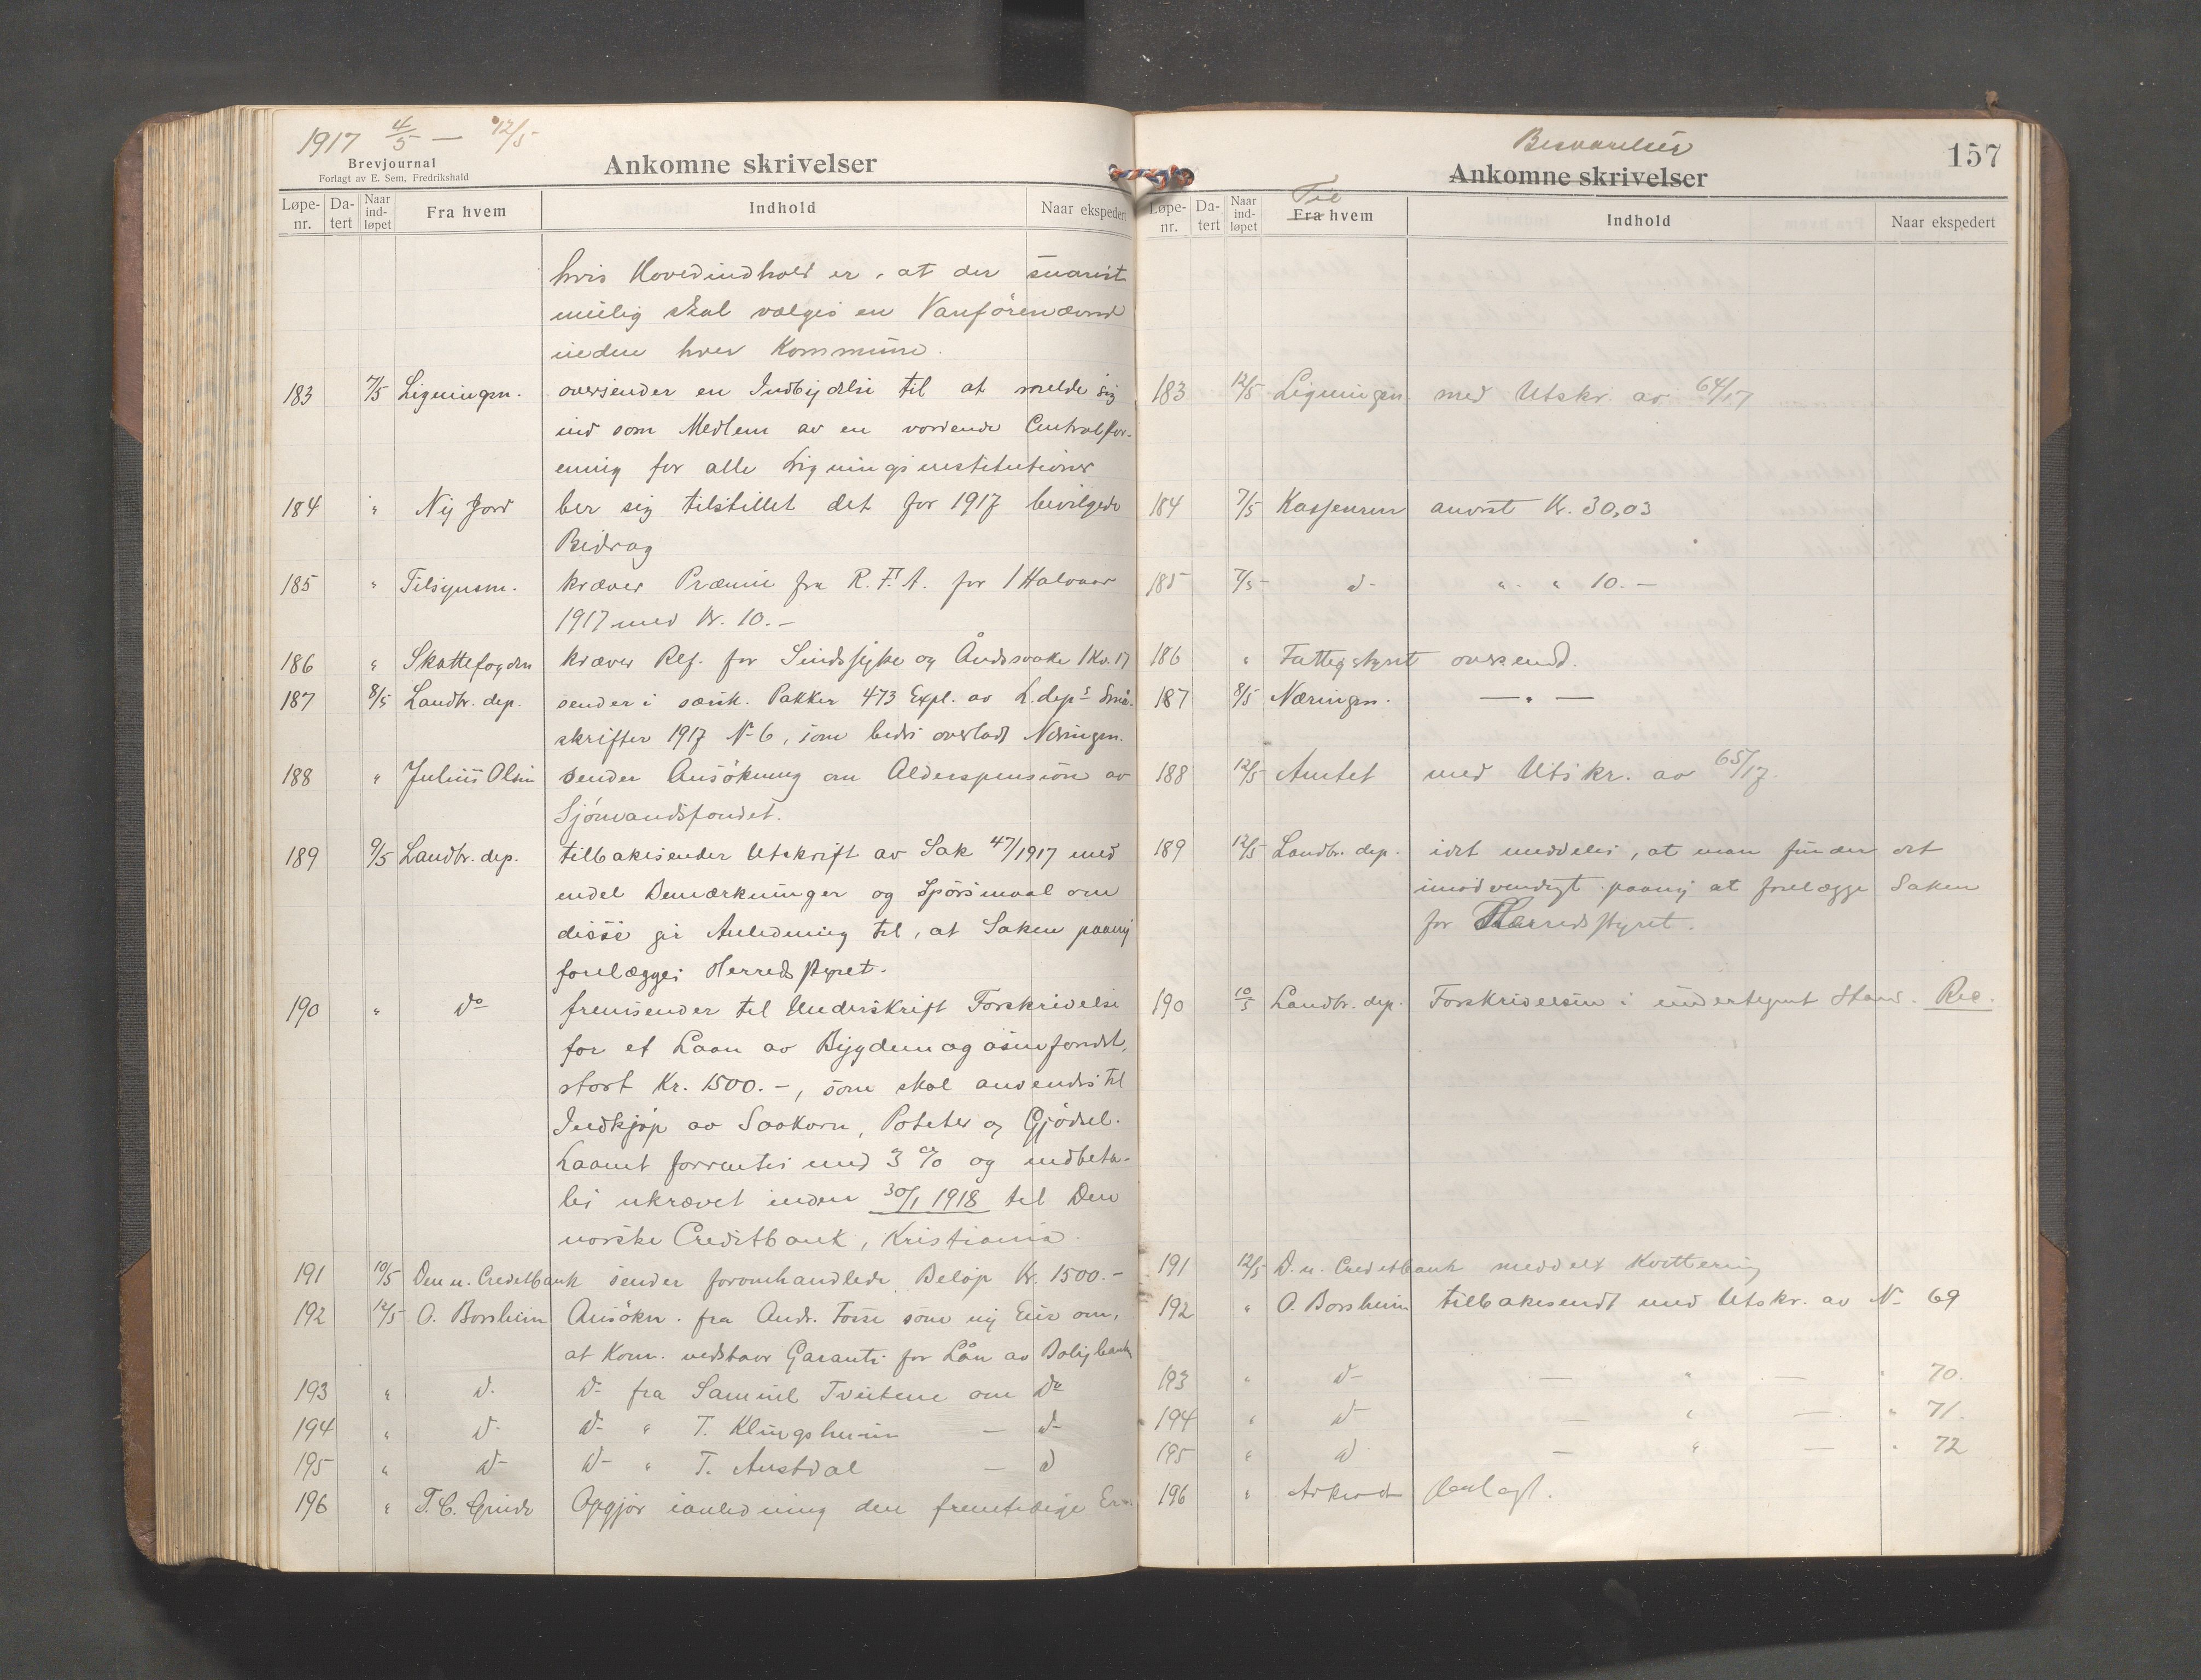 1917 4/5 — 12/5
Brevjournal
Forlagt av E. Sem, Fredrikshald
Ankomne skrivelser
Løpe-nr. Da-tert Naar ind-løpet Fra hvem Indhold Naar ekspedert
hvis Hovedindhold er, at der snarest
mulig skal vælges en Vanförenævnd
inden hver Kommune.
183 7/5 Ligningsn. oversender en Indbydelse til at melde sig
ind som Medlem av en vordende Centralfor-
ening for alle Ligningsinstitutioner
184 " Ny Jord ber sig tilstillet det for 1917 bevilgede
Bidrag
185 " Tilsynsm. kræver Præmie fra R.F.A. for 1 Halvaar
1917 med Kr. 10.—
186 " Skattefogden kræver Ref. for Sindssyke og Åndssvake 1 Kv. 17
187 8/5 Landbr. dep. sender i særsk. Pakker 473 Expl. av L.deps Smaa-
skrifter 1917 No 6, som bedes overladt Næringsn.
188 " Julius Olsen sender Ansökning om Alderspension av
Sjömandsfondet.
189 9/5 Landbr. dep. tilbakesender Utskrift av Sak 47/1917 med
endel Bemærkninger og Spörsmaal om
disse gir Anledning til, at Saken paany
forelægges Herredsstyret.
190 " do fremsender til Underskrift Forskrivelse
for et Laan av Bygdemagasinfondet,
stort Kr. 1500.—, som skal anvendes til
Indkjöp av Saakorn, Poteter og Gjödsel.
Laanet forrentes med 3 % og indbeta-
les ukrævet inden 30/1 1918 til Den
norske Creditbank, Kristiania.
191 10/5 Den n. Creditbank sender foromhandlede Belöp Kr. 1500.—
192 12/5 O. Borsheim Ansökn. fra Andr. Fosse som ny Eier om,
at Kom. vedstaar Garanti for Lån av Boligbank
193 " do do fra Samuel Tveitene om do
194 " do do " T. Klungsheim — do
195 " do do " T. Austdal — do
196 " T. C. Grinde Opgjör ianledning den fremtidige
Besvarelser
Ankomne skrivelser
157
Løpe-nr. Da-tert Naar ind-løpet Fra hvem Til Indhold Naar ekspedert
183 12/5 Ligningsn. med Utskr. av 64/17
184 7/5 Kassereren anvist Kr. 30,03
185 7/5 do " " 10.—
186 " Fattigstyret oversendt.
187 8/5 Næringsn. — " —
188 12/5 Amtet med Utskr. av 65/17
189 12/5 Landbr. dep. idet meddeles, at man finder det
unödvendigt paany at forelægge Saken
for Herredsstyret.
190 10/5 Landbr. dep. Forskrivelsen i undertegnet Stand. Rec.
191 12/5 D. n. Creditbank meddelt Kvittering
192 " O. Borsheim tilbakesendt med Utskr. av No 69
193 " do — " — " 70.
194 " do — " — " 71.
195 " do — " — " 72
196 " Arkivet henlagt.